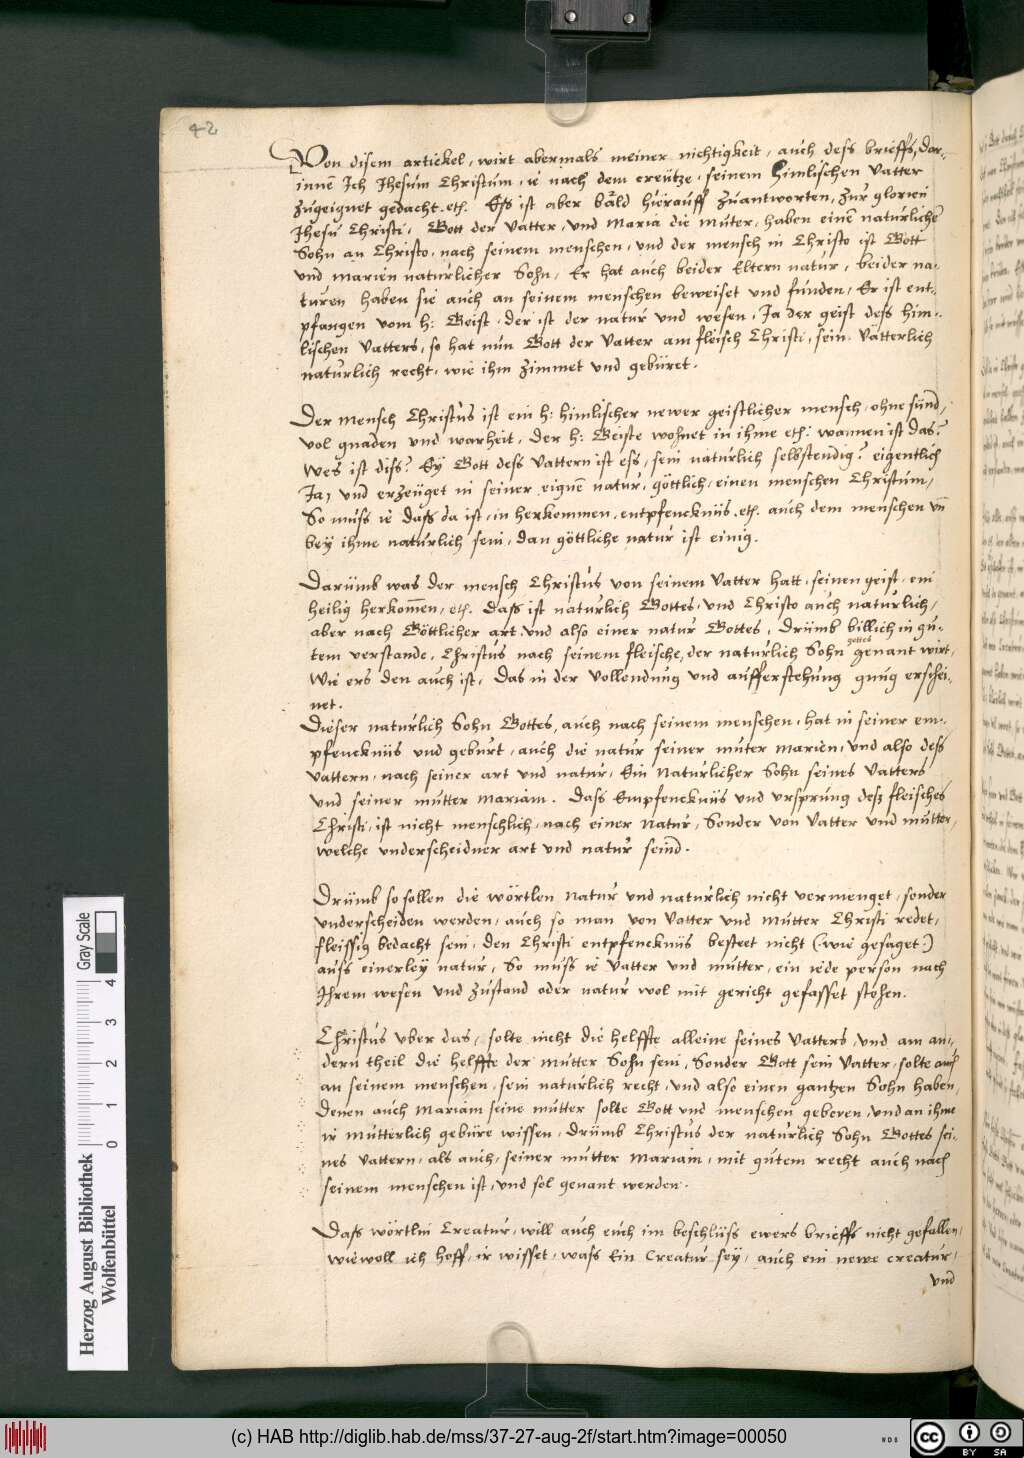 42
Von disem artickel, wirt abermals meiner nichtigkeit, auch dess brieffs, dar-
innē Ich Jhesum Christum, ie nach dem creütze, seinem Himlischen Vatter
zugeignet gedacht. etc. Ess ist aber bald hierauff zuantworten, zur glorien
Jhesu Christi, Gott der Vatter, vnd Maria die muter, haben einē naturlichē
Sohn an Christo, nach seinem menschen, vnd der mensch in Christo ist Gott
vnd marien naturlicher Sohn, Er hat auch beider Eltern natur, beider na-
turen haben sie auch an seinem menschen beweiset vnd funden, Er ist ent-
pfangen vom h: Geist, der ist der natur vnd wesen, Ja der geist dess him-
lischen Vatters, so hat nun Gott der Vatter am fleisch Christi, sein Vätterlich
naturlich recht, wie ihm zimmet vnd gebüret.
Der mensch Christus ist ein h: himlischer newer geistlicher mensch, ohne sünd,
vol gnaden vnd warheit, der h: Geiste wohnet in ihme etc: wannen ist das?
Wes ist diss? Ey Gott dess Vattern ist ess, sein naturlich selbstendig? eigentlich
Ja, vnd erzeüget in seiner eignē natur, göttlich, einen menschen Christum,
So muss ie dass da ist, in herkommen, entpfencknüs, etc. auch dem menschen vn̄
bey ihme naturlich sein, dan göttliche natur ist einig.
Darümb was der mensch Christus von seinem Vatter hatt, seinen geist, ein
heilig herkom̄en, etc. Dass ist naturlich Gottes, vnd Christo auch naturlich,
aber nach Göttlicher art vnd also einer natur Gottes, Drümb billich in gu-
tem verstande, Christus nach seinem fleische, der naturlich Sohn gottes genant wirt,
Wie ers den auch ist, Das in der Vollendung vnd aufferstehung gnug erschei-
net.
Dieser naturlich Sohn Gottes, auch nach seinem menschen, hat in seiner em-
pfencknüs vnd geburt, auch die natur seiner muter marien, vnd also dess
Vattern, nach seiner art vnd natur, Ein Naturlicher Sohn seines Vatters
vnd seiner mutter mariam. Dass Empfencknüs vnd vrsprung dess fleisches
Christi, ist nicht menschlich, nach einer Natur, Sonder von Vatter vnd mutter,
welche vnderscheidner art vnd natur seind.
Drümb so sollen die wörtlen Natur vnd naturlich nicht vermenget, sonder
vnderscheiden werden, auch so man von Vatter vnd Mutter Christi redet,
fleissig bedacht sein, den Christi entpfencknüs besteet nicht (wie gesaget:)
auss einerley natur, So muss ie Vatter vnd mutter, ein iede person nach
Ihrem wesen vnd zustand oder natur wol mit gericht gefasset stehen.
Christus vber das, solte nicht die helffte alleine seines Vatters, vnd am an-
dern theil die helffte der mutter Sohn sein, Sonder Gott sein Vatter, solte auch
an seinem menschen, sein naturlich recht, vnd also einen gantzen Sohn haben,
Denen auch Mariam seine mutter solte Gott vnd menschen geberen, vnd an ihme
ir mutterlich gebüre wissen, Drümb Christus der naturlich Sohn Gottes sei-
nes Vattern, als auch, seiner mutter Mariam, mit gutem recht auch nach
seinem menschen ist, vnd sol genant werden.
Dass wörtlin Creatur, will auch euch im beschlüss ewers brieffs nicht gefallen,
wiewoll ich hoff, ir wisset, wass Ein Creatur sey, auch ein newe creatur,
vnd
Herzog August Bibliothek
Wolfenbüttel
Gray Scale
0 1 2 3 4
(c) HAB http://diglib.hab.de/mss/37-27-aug-2f/start.htm?image=00050
WDB
cc BY SA